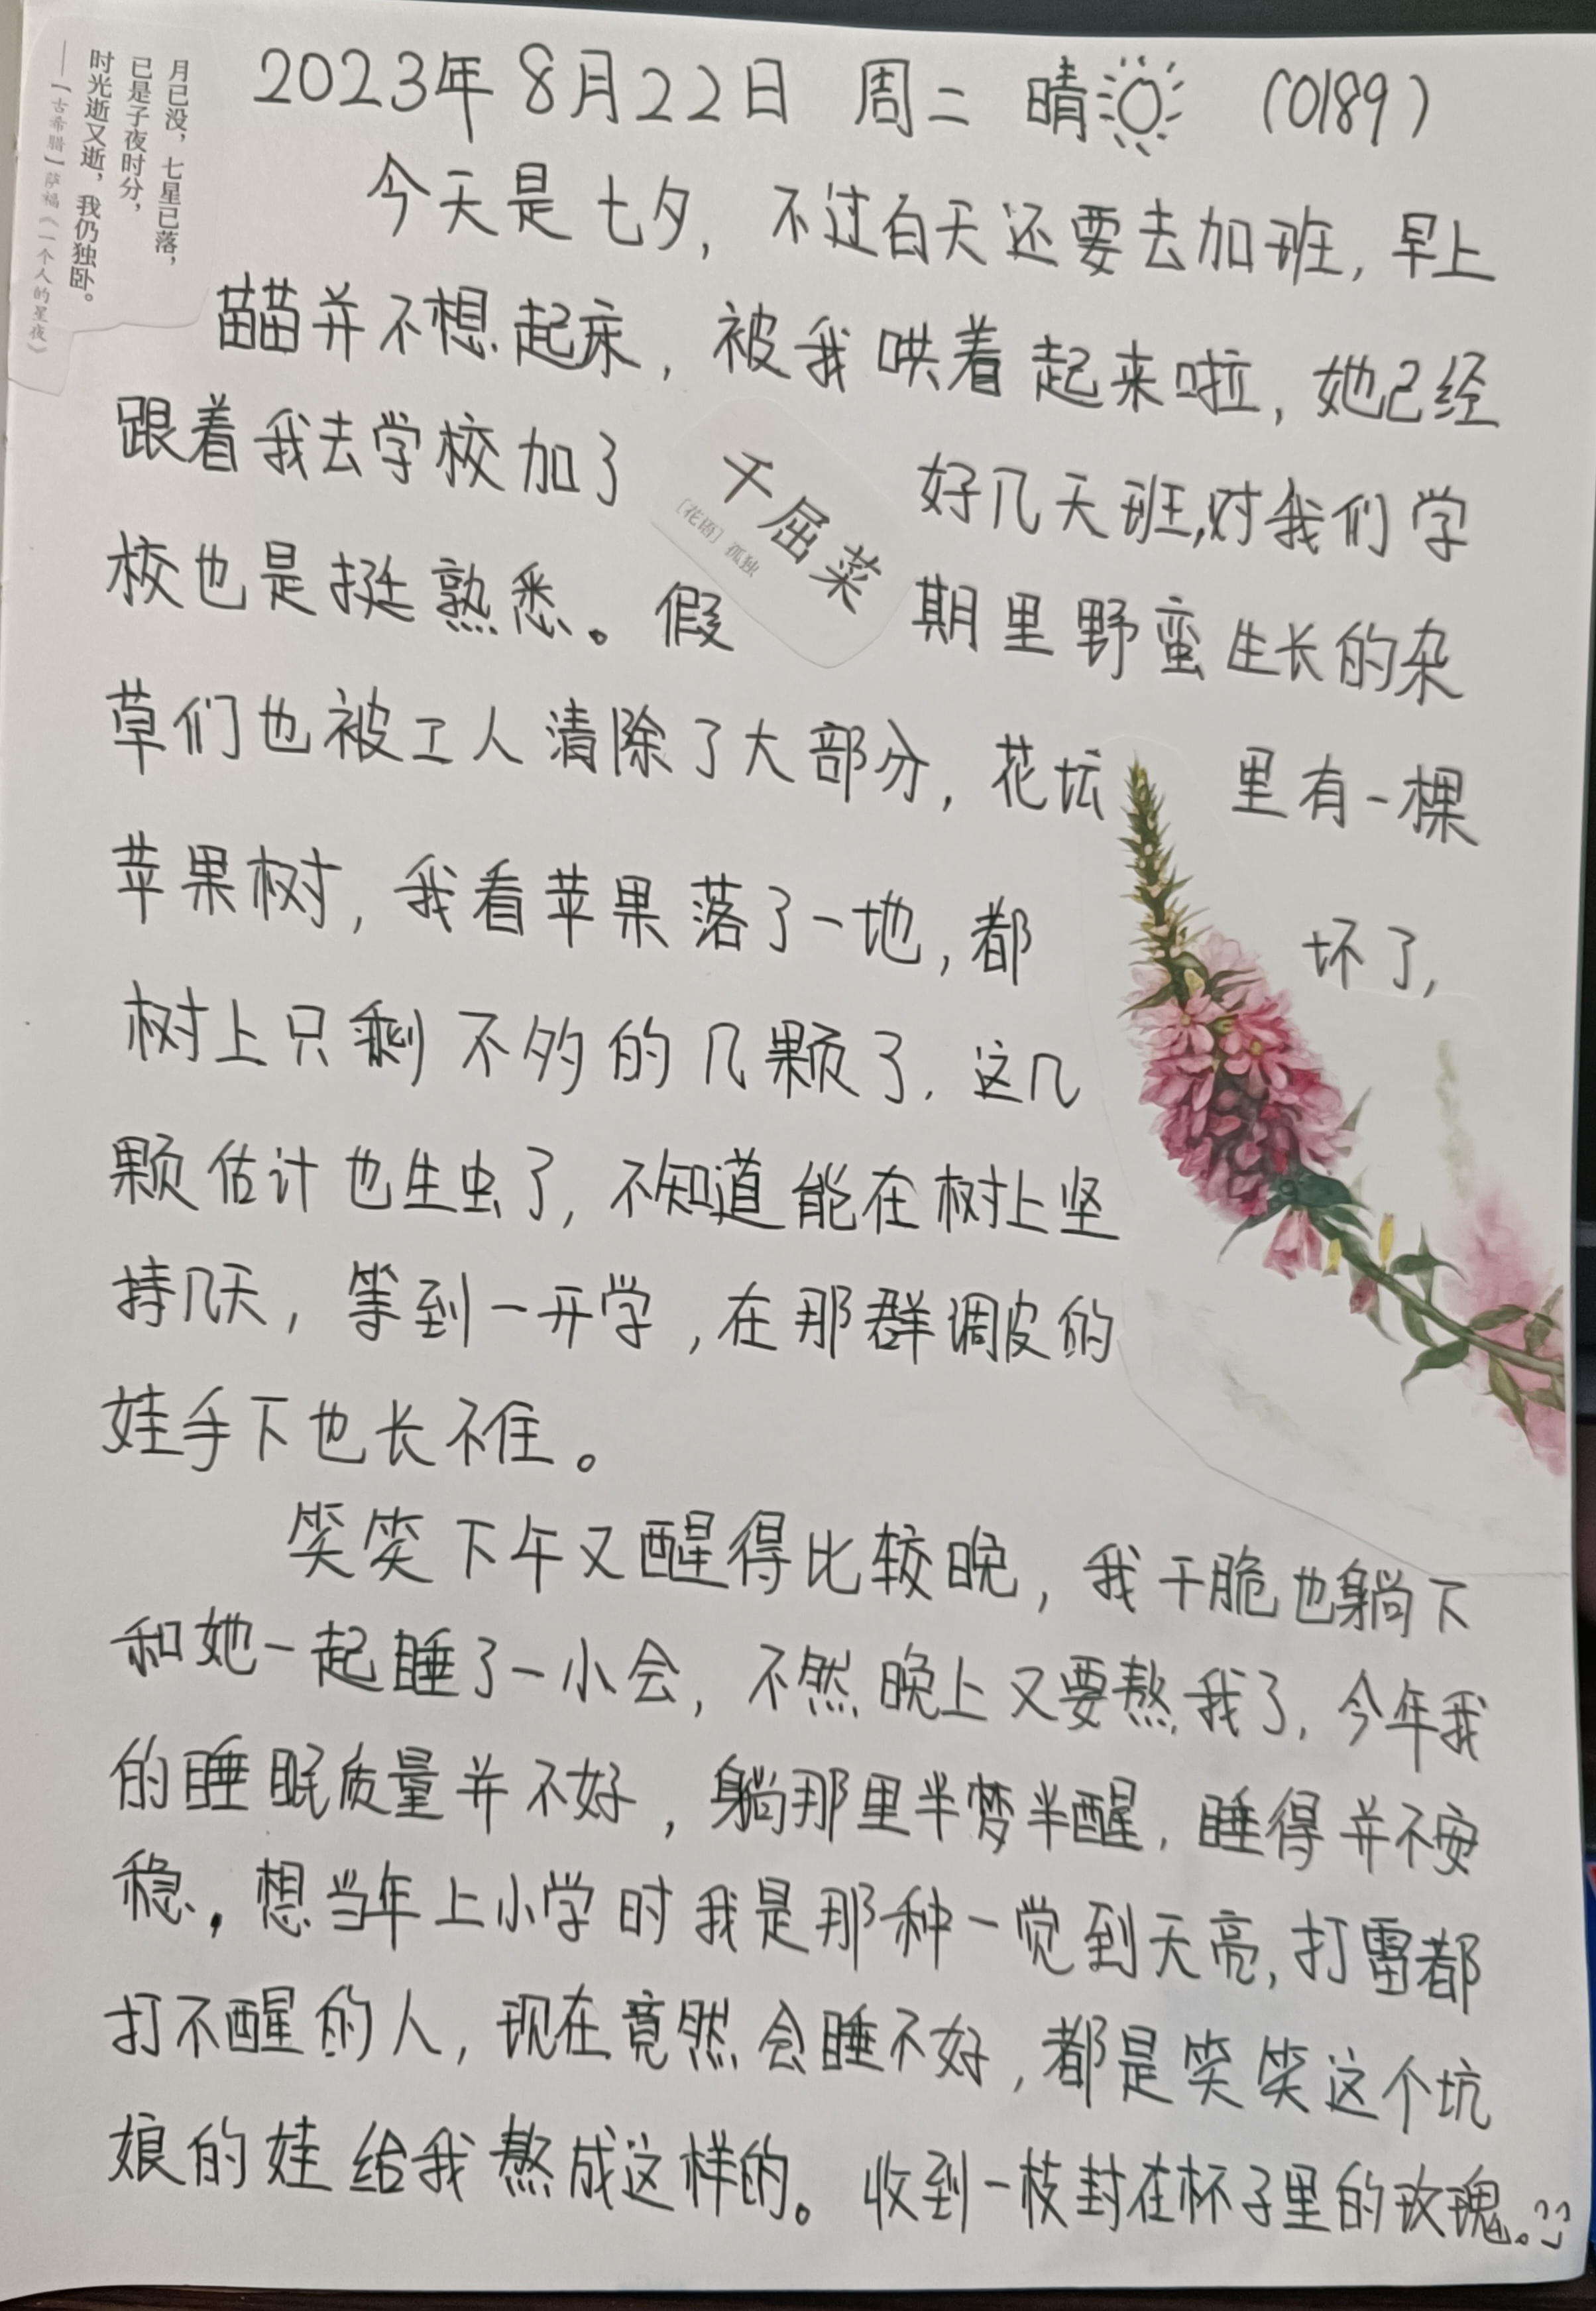 月已没，七星已落，
已是子夜时分，
时光逝又逝，我仍独卧。
——［古希腊］萨福《一个人的星夜》
2023年8月22日 周二 晴 (0189)
今天是七夕，不过白天还要去加班，早上
苗苗并不想起床，被我哄着起来啦，她已经
跟着我去学校加了 好几天班,对我们学
千屈菜
［花语］孤独
校也是挺熟悉。假 期里野蛮生长的杂
草们也被工人清除了大部分，花坛 里有一棵
苹果树，我看苹果落了一地，都 坏了，
树上只剩不多的几颗了．这几
颗估计也生虫了，不知道能在树上坚
持几天，等到一开学，在那群调皮的
娃手下也长不住。
笑笑下午又醒得比较晚，我干脆也躺下
和她一起睡了一小会，不然晚上又要熬我了．今年我
的睡眠质量并不好，躺那里半梦半醒．睡得并不安
稳．想当年上小学时我是那种一觉到天亮，打雷都
打不醒的人，现在竟然会睡不好，都是笑笑这个坑
娘的娃给我熬成这样的。收到一枝封在杯子里的玫瑰。